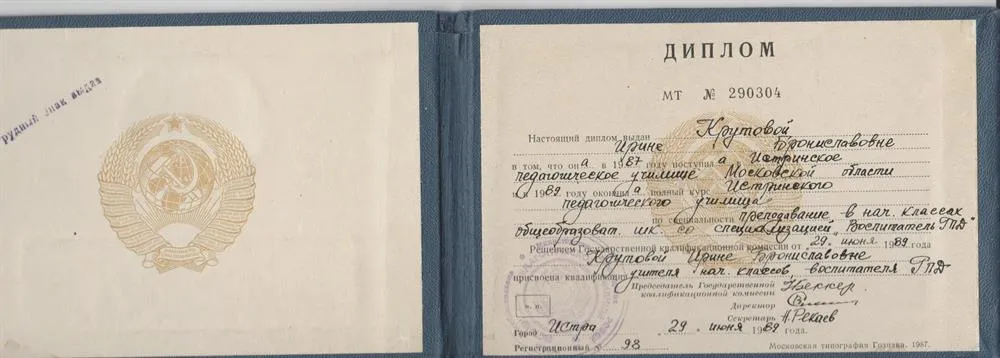 рудный знак выдан
ДИПЛОМ
МТ № 290304
Настоящий диплом выдан Крутовой
Ирине Брониславовне
в том, что она в 1987 году поступила в Истринское
педагогическое училище Московской области
и в 1989 году окончила полный курс Истринского
педагогического училища
по специальности преподавание в нач. классах
общеобразоват. шк. со специализацией „Воспитатель ГПД"
Решением Государственной квалификационной комиссии от 29 июня 1989 года
Крутовой Ирине Брониславовне
присвоена квалификация учителя нач. классов, воспитателя ГПД
Председатель Государственной
квалификационной комиссии
Директор
Секретарь А.Рекаев
М. П.
Город Истра 29 июня 1989 года.
Регистрационный № 98
Московская типография Гознака. 1987.